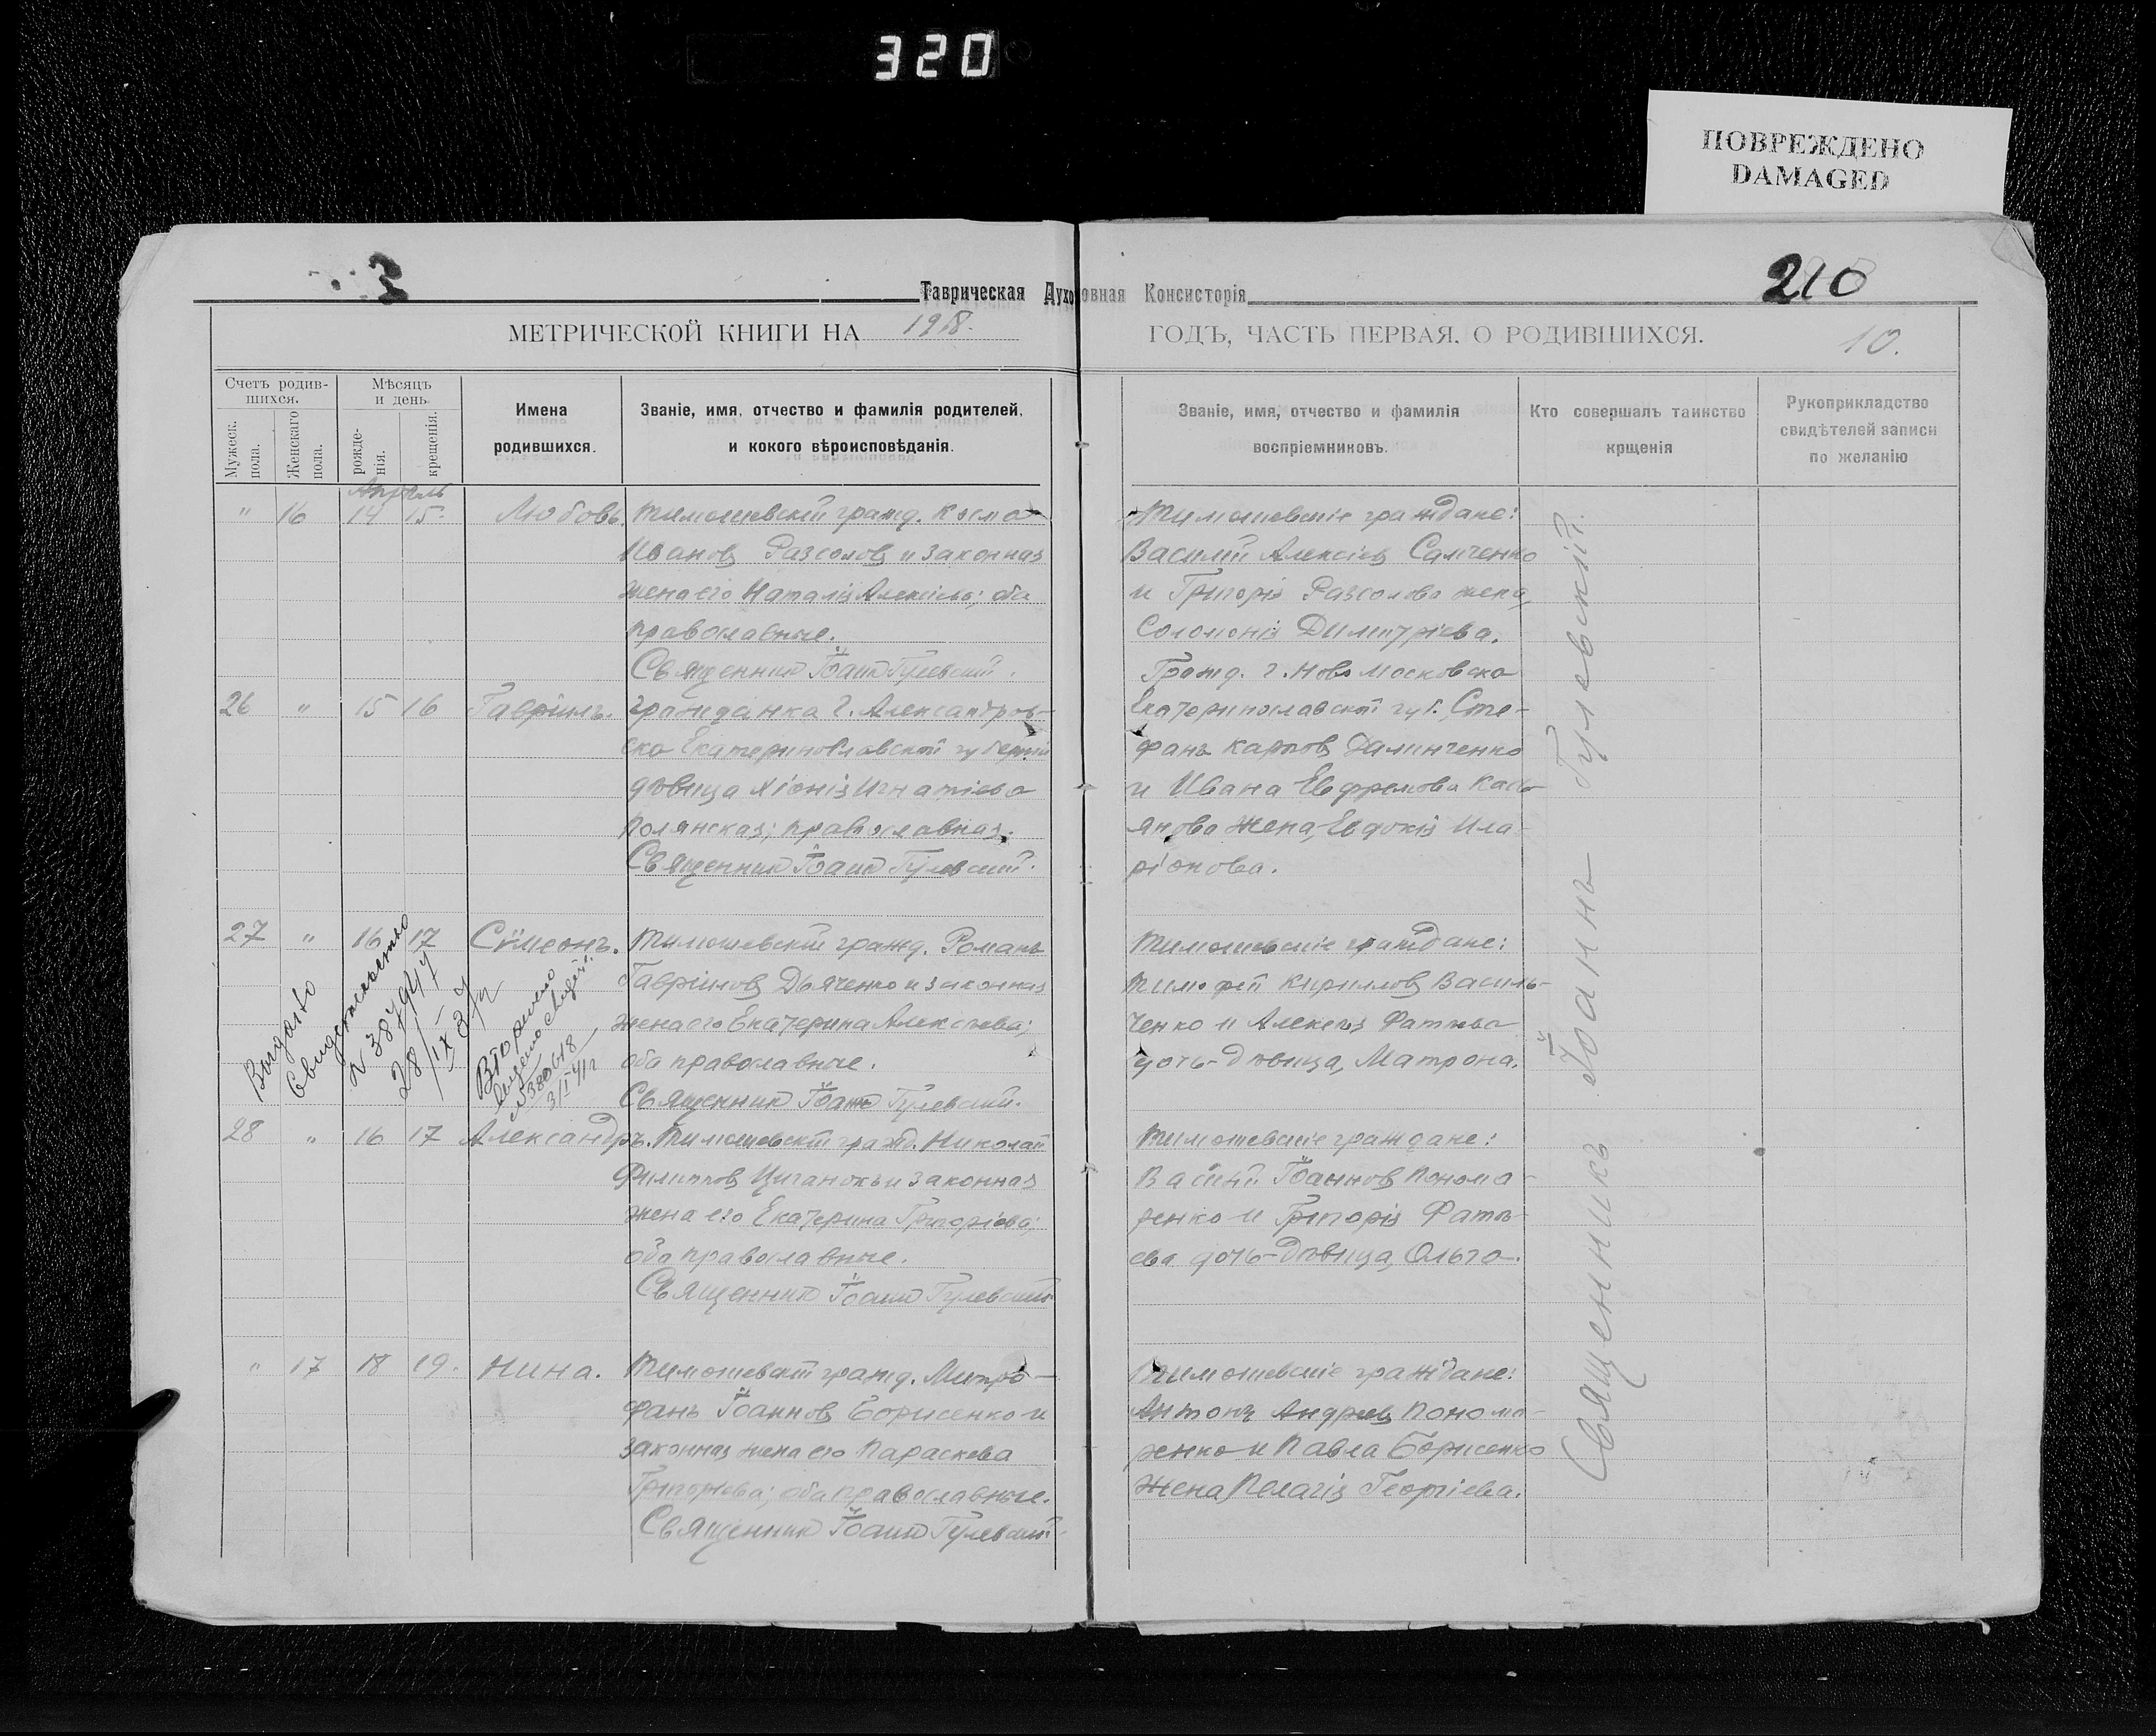 320
ПОВРЕЖДЕНО
DAMAGED
3
Таврическая Духовная Консисторія
210
МЕТРИЧЕСКОЙ КНИГИ НА 1918. ГОДЪ, ЧАСТЬ ПЕРВАЯ. О РОДИВШИХСЯ.
10.
Счетъ родив-
шихся.
Мужеск.
пола.
Женскаго
пола.
Мѣсяцъ
и день.
рожде-
нія.
крещенія.
Имена
родившихся.
Званіе, имя, отчество и фамилія родителей,
и кокого вѣроисповѣданія.
Званіе, имя, отчество и фамилія
воспріемниковъ.
Кто совершалъ таинство
крщенія
Рукоприкладство
свидѣтелей записи
по желанію
Апрѣль
" 16 14 15. Любовь. Тимошевскій гражд. Косма
Ивановъ Разсоловъ и законная
жена его Наталія Алексіева; оба
православные.
Священникъ Іоаннъ Гулевскій.
Тимошевскіе граждане:
Василій Алексіевъ Самченко
и Григорія Разсолова жена,
Соломонія Димитріева.
26 " 15 16 Гавріилъ. Гражданка г. Александров-
ска Екатеринославской губерніи
дѣвица Хіонія Игнатіева
Полянская; православная.
Священникъ Іоаннъ Гулевскій.
Гражд. г. Новомосковска
Екатеринославской губ. Сте-
фанъ Карповъ Далинченко
и Ивана Евфремова Касья-
янова жена, Евдокія Ила-
ріонова.
27 " 16 17 Сѵмеонъ. Тимошевскій гражд. Романъ
Гавріиловъ Дьяченко и законная
жена его Екатерина Алексѣева;
оба православные.
Священникъ Іоаннъ Гулевскій.
Тимошевскіе граждане:
Тимофей Кирилловъ Василь-
ченко и Алексія Фатѣева
дочь-дѣвица, Матрона.
Выдано
Свидетельство
N 387944
28/IX
Вторично
выдано свидет.
N 380618
3/I 41 г
28 " 16 17 Александръ. Тимошевскій гражд. Николай
Филипповъ Циганокъ и законная
жена его Екатерина Григоріева;
оба православные.
Священникъ Іоаннъ Гулевскій
Тимошевскіе граждане:
Василій Іоанновъ Понома-
ренко и Григорія Фатѣ-
ева дочь-дѣвица, Ольга.
" 17 18 19. Нина. Тимошевскій гражд. Митро-
фанъ Іоанновъ Борисенко и
законная жена его Параскева
Григорьева; оба православные.
Священникъ Іоаннъ Гулевскій
Тимошевскіе граждане:
Антонъ Андреевъ Понома-
ренко и Павла Борисенко
жена Пелагія Георгіева.
Священникъ Іоаннъ Гулевскій.